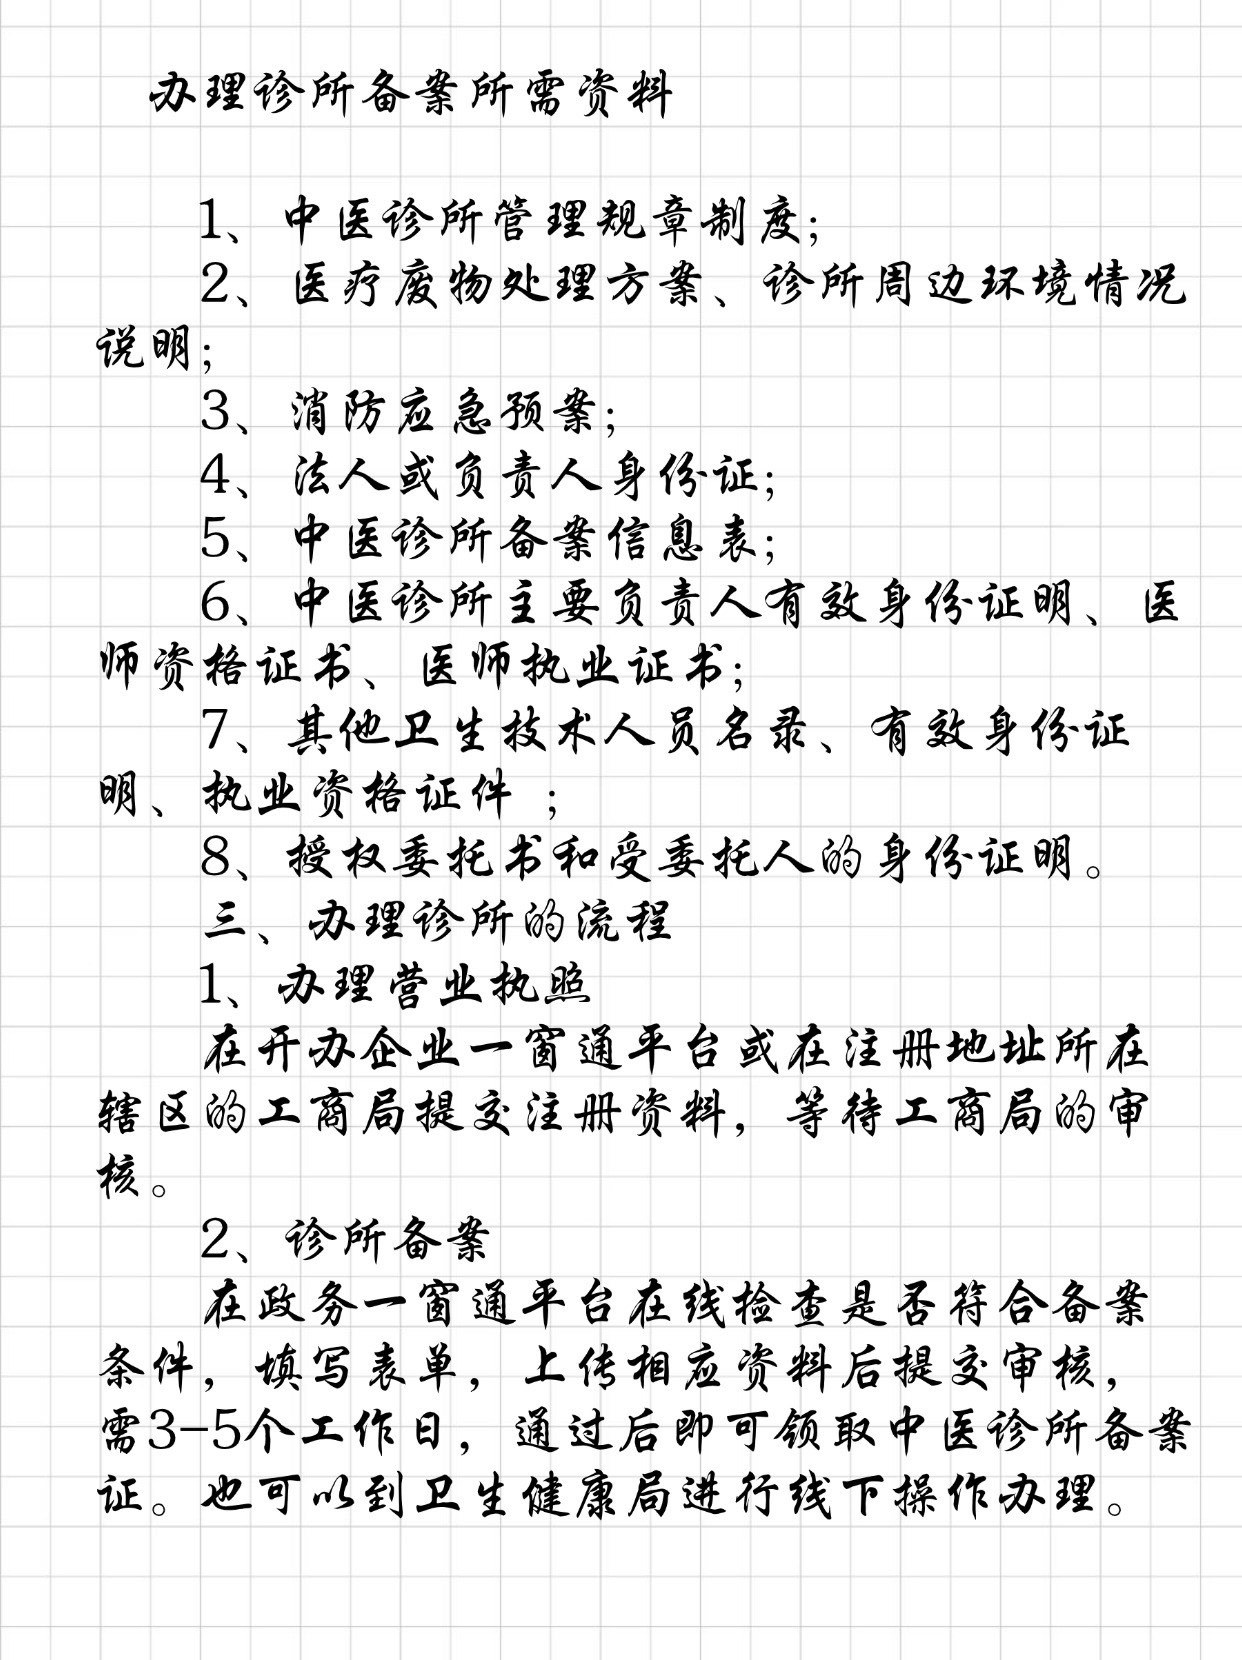 办理诊所备案所需资料
1、中医诊所管理规章制度；
2、医疗废物处理方案、诊所周边环境情况
说明；
3、消防应急预案；
4、法人或负责人身份证；
5、中医诊所备案信息表；
6、中医诊所主要负责人有效身份证明、医
师资格证书、医师执业证书；
7、其他卫生技术人员名录、有效身份证
明、执业资格证件 ；
8、授权委托书和受委托人的身份证明。
三、办理诊所的流程
1、办理营业执照
在开办企业一窗通平台或在注册地址所在
辖区的工商局提交注册资料，等待工商局的审
核。
2、诊所备案
在政务一窗通平台在线检查是否符合备案
条件，填写表单，上传相应资料后提交审核，
需3-5个工作日，通过后即可领取中医诊所备案
证。也可以到卫生健康局进行线下操作办理。